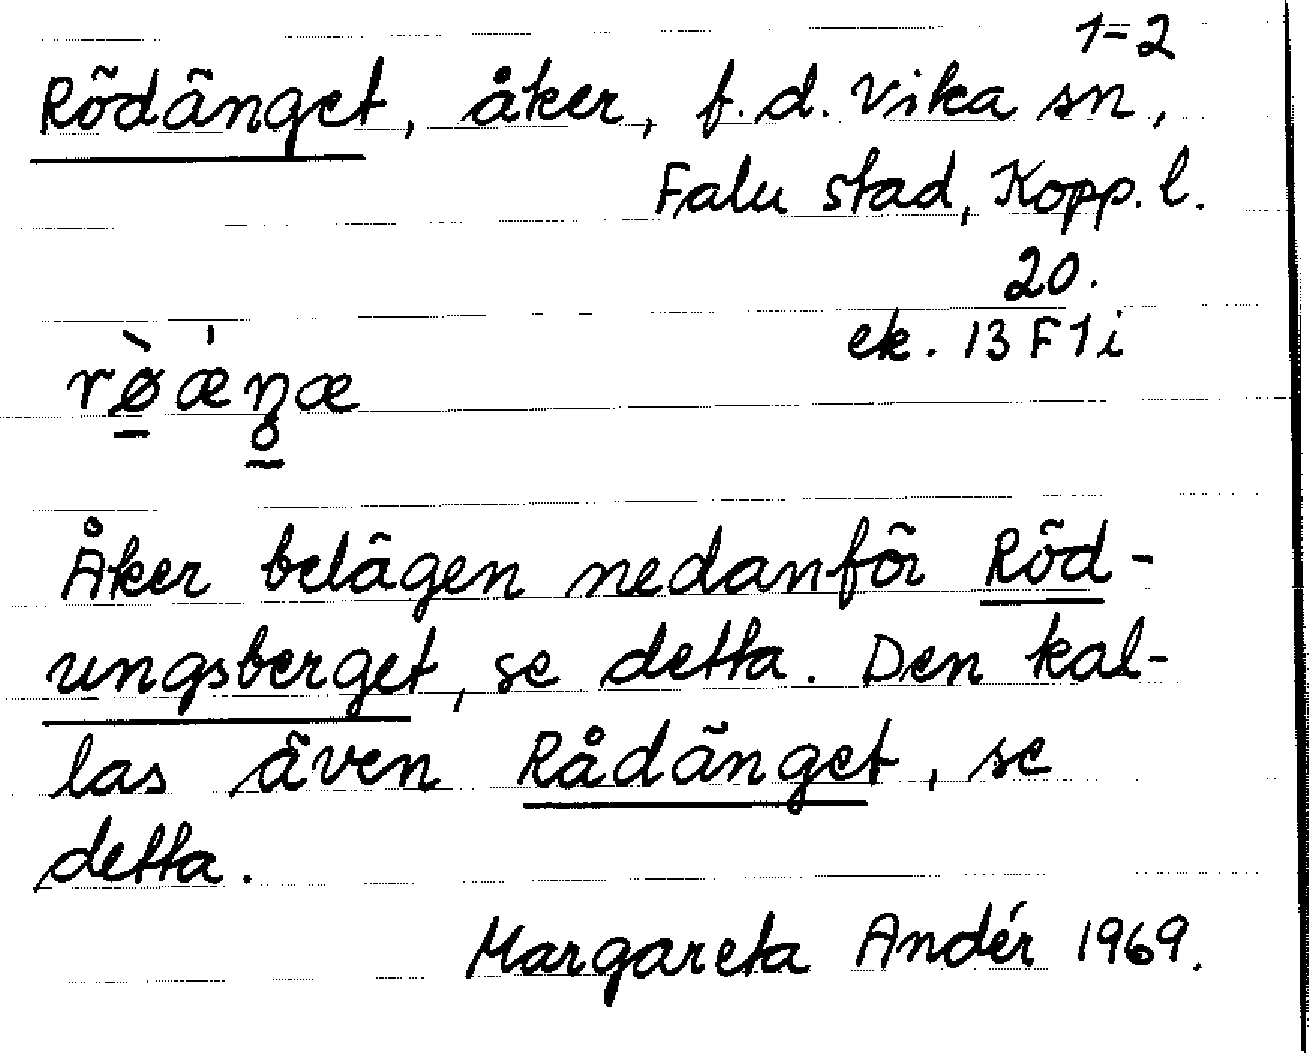 1=2
Rödänget, åker, f.d. Vika sn,
Falu stad, Kopp. l.
20.
ek. 13 F 1 i
rø̠̀æ̍ŋæ
Åker belägen nedanför Röd-
ungsberget, se detta. Den kal-
las även Rådänget, se
detta.
Margareta Andér 1969.